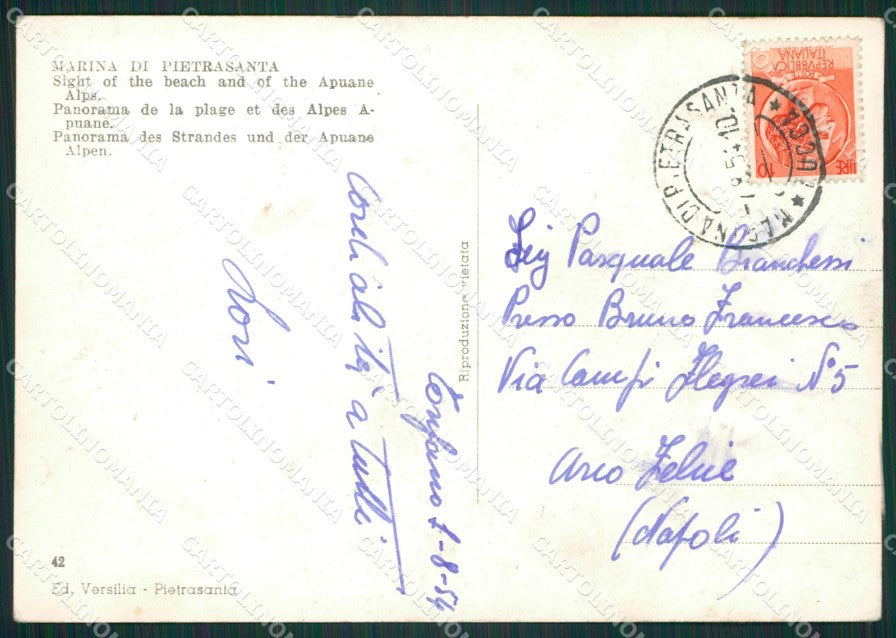 MARINA DI PIETRASANTA
Sight of the beach and of the Apuane
Alps.
Panorama de la plage et des Alpes A-
puane.
Panorama des Strandes und der Apuane
Alpen.
Cordialità a tutti
Lori
Tonfano 7-8-54
Riproduzione vietata
REPVBBLICA
ITALIANA
LIRE 10
MARINA DI PIETRASANTA * LUCCA *
Sig Pasquale Branchessi
Presso Bruno Francesco
Via Campi Flegrei N° 5
Arco Felice
(Napoli)
42
Ed. Versilia - Pietrasanta
CARTOLINOMANIA